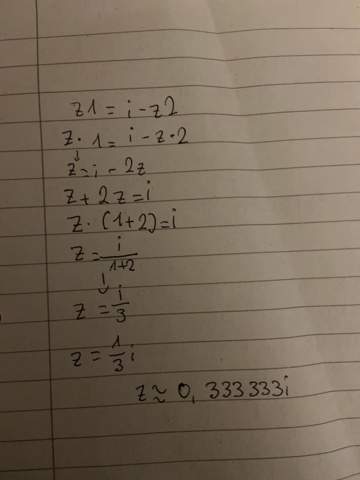 z1 = i - z2
z · 1 = i - z · 2
z = i - 2z
z + 2z = i
z · (1+2) = i
z = i/1+2
z = i/3
z = 1/3 i
z ≈ 0,333333i